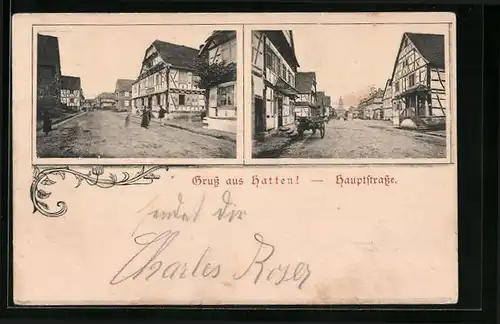 Gruß aus Hatten! — Hauptstraße.
sendet dir
Charles Roser